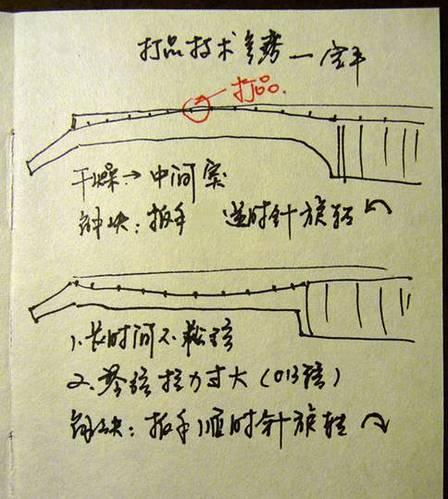 打品技术参考一
打品.
干燥→中间突
解决:扳手 逆时针旋转
1.长时间不松弦
2.琴弦拉力过大(013弦)
解决:扳手顺时针旋转